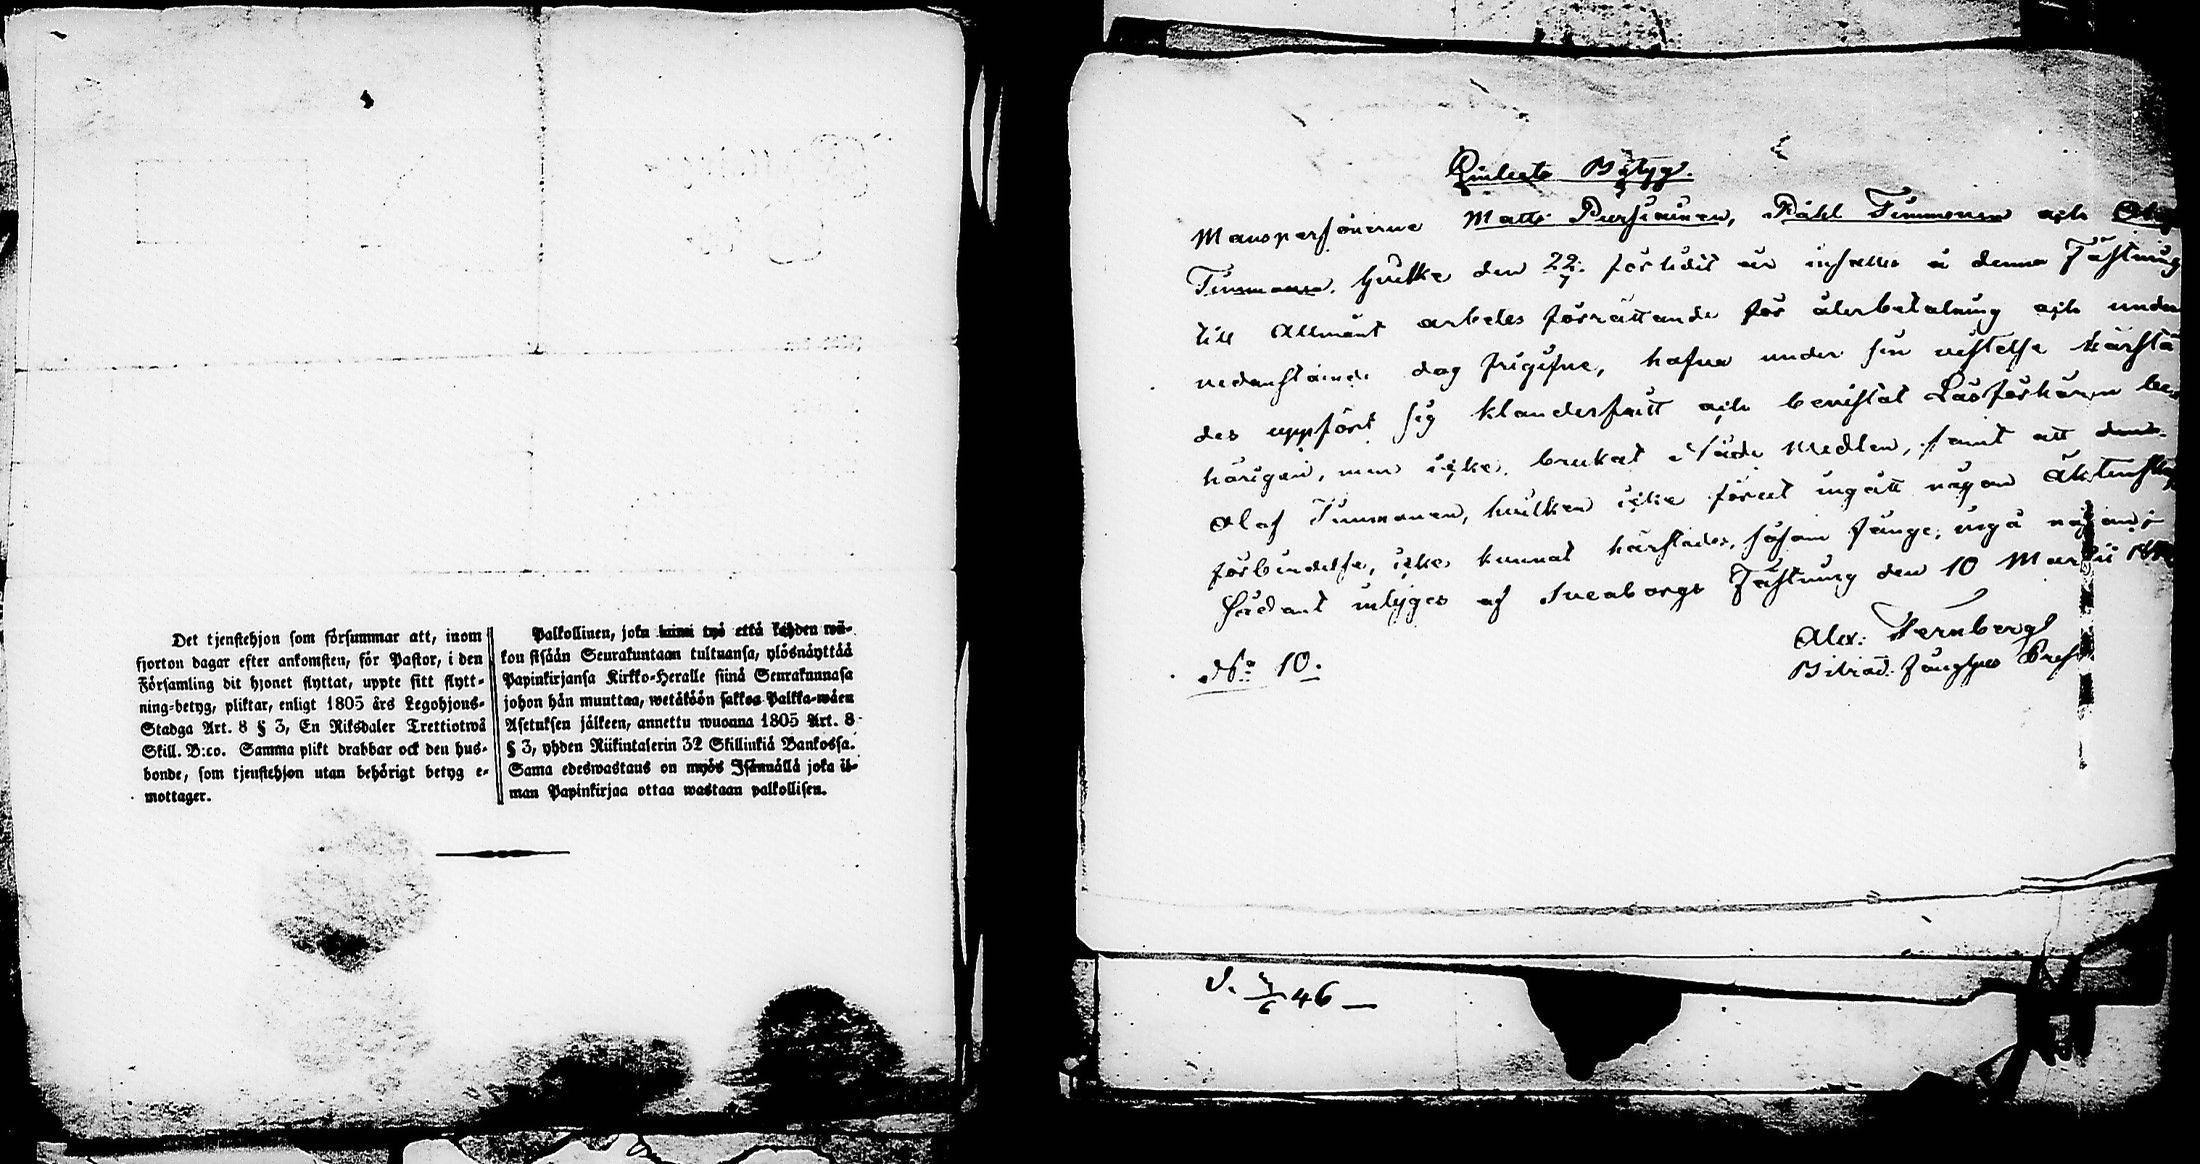 Det tjenstehjon som försummar att, inom
fjorton dagar efter ankomsten, för Pastor, i den
Församling dit hjonet flyttat, uppte sitt flytt-
ning-betyg, pliktar, enligt 1805 års Legohjons-
Stadga Art. 8 § 3, En Riksdaler Trettiotwå
Skill. B:co. Samma plikt drabbar ock den hus-
bonde, som tjenstehjon utan behörigt betyg e-
mottager.
Palkollinen, joka että kahden wii-
kon sisään Seurakuntaan tultuansa, ylösnäyttää
Papinkirjansa Kirkko-Heralle siinä Seurakunnasa
johon hän muuttaa, wetäköön sakkoa Palkka-wäen
Asetuksen jälkeen, annettu wuonna 1805 Art. 8
§ 3, yhden Riikintalerin 32 Skillinkiä Bankossa.
Sama edeswastaus on myös Isännällä joka il-
man Papinkirjaa ottaa wastaan palkollisen.
Betyg.
Manspersonerne Matts Pursiainen, Påhl Timmonen och
Timmonen hvilka den 22/7 förlidit år insattes å denna Fästning
till Allmänt arbetes förrättande för återbetalning och under
nedanstående dag frigifne, hafva under sin vistelse härstä
des uppfört sig klanderfritt och bevistat Läsförhören be
hörigen, men icke brukat Nåde Medlen, samt att
Olof Timmonen, hvilken icke förut ingått någon Äktenskaps
förbindelse, icke kunnat härstädes, såsom Fånge, ingå någon;
Sådant intygas af Sveaborgs Fästning den 10 Martii
Alex: Fernberg
Bitrad. Fång
No 10.
46